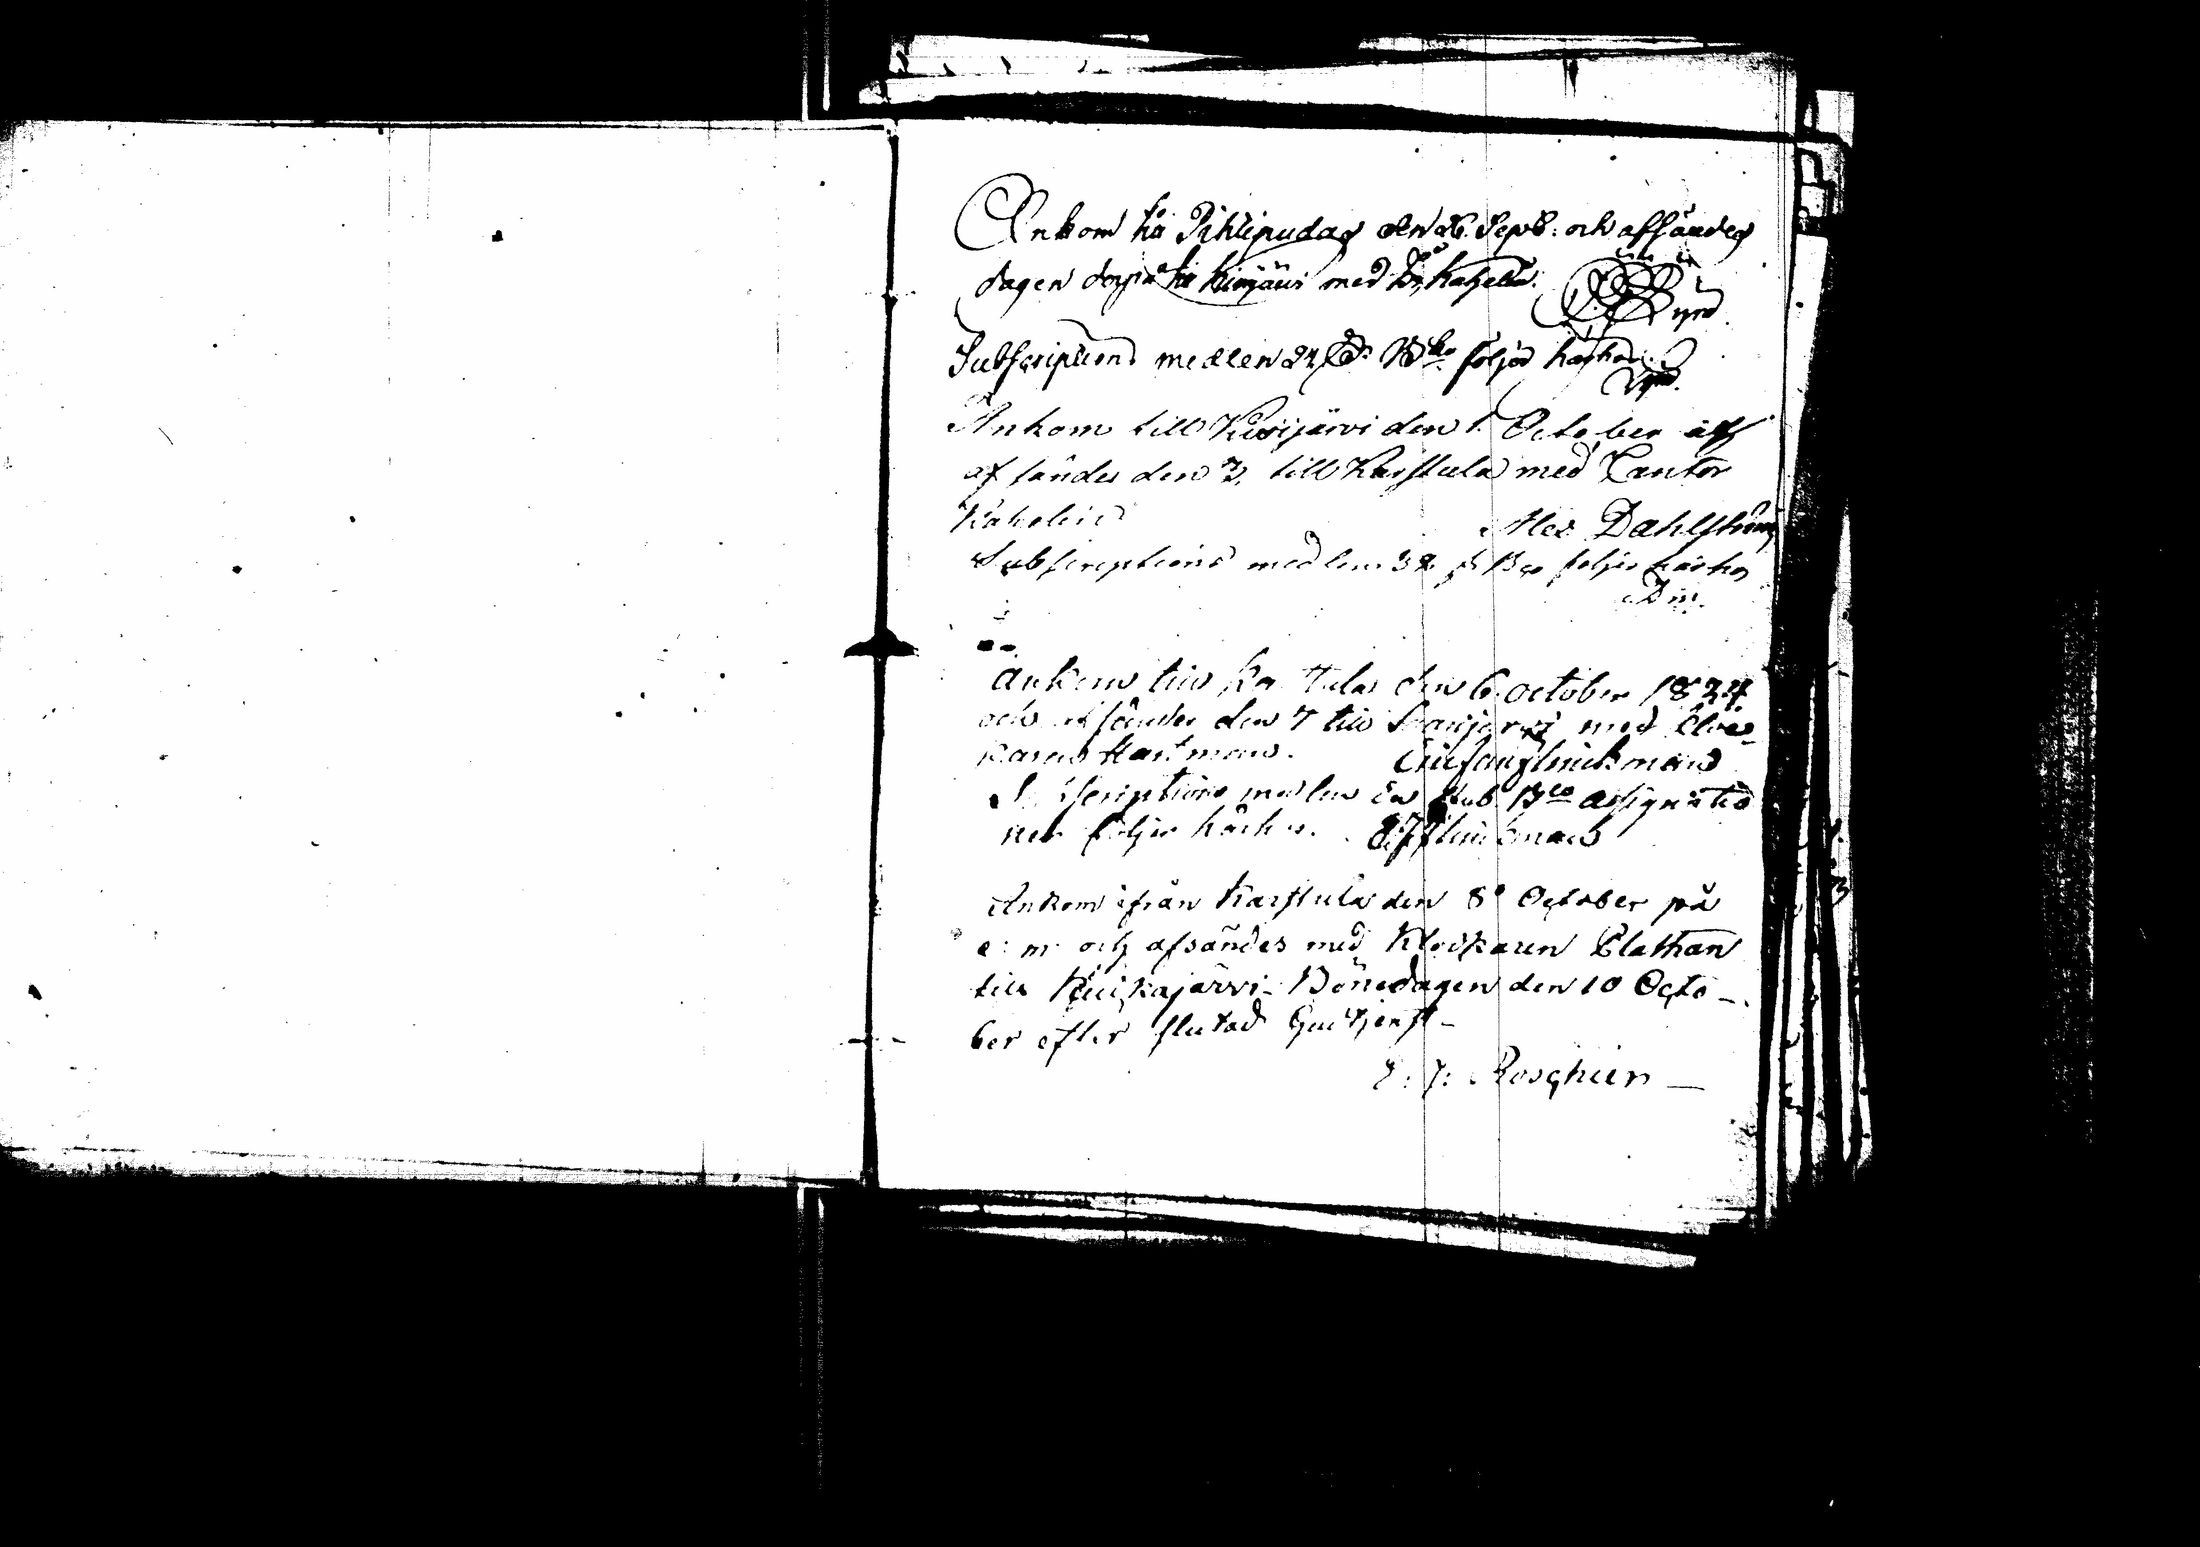 Ankom till Pihlipudas den 26. Sept: och afsändes
dagen derpå till Kivijärvi med Kahelin.
Subscriptions medlen 32 Bco följer härhos.
Ankom till Kivijärvi den 1. October och
afsändes den 3. till Karstula med Cantor
Kahelin Alex Dahlström
Subscriptions medlen 32 Bco följer härhos
Dm.
Ankom till Karstula den 6 October 1824
och afsändes den 7 till Saarijärvi med Cloc-
karen Hartman. Flinckman
Subscriptions medlen Rub. Bco assignatio
ner följer härhos. Flinckman
Ankom ifrån Karstula den 8. October på
e: m: och afsändes med Klockaren Elathan
till Keikajärvi Bönedagen den 10 Octo-
ber efter slutad Gudtjenst-
J: J: Roschier